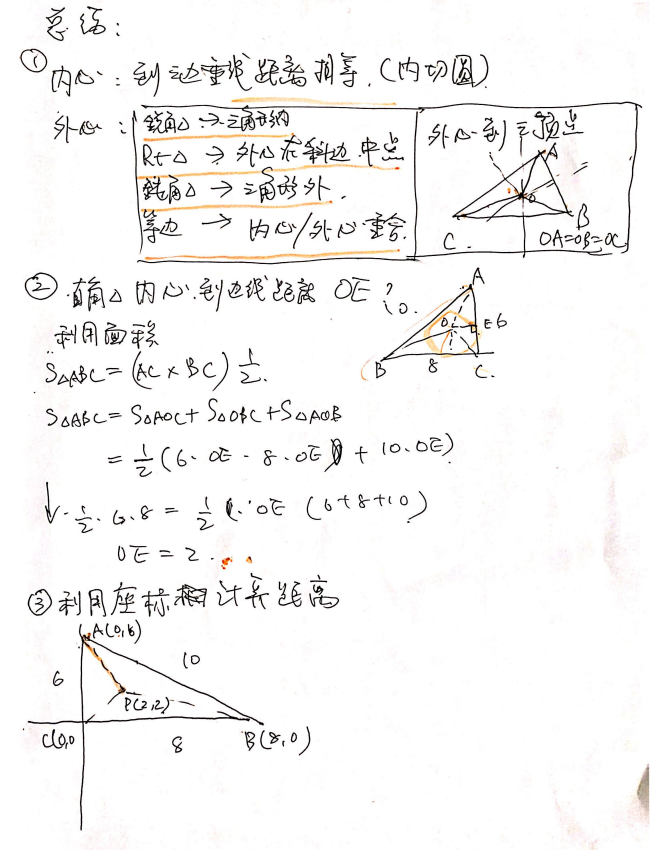 总结:
① 内心: 到边垂线距离相等. (内切圆)
外心: 锐角△ → 三角形内
Rt△ → 外心在斜边中点
鈍角△ → 三角形外.
等边 → 内心/外心重合.
外心到三顶点
A
O
B
C.
OA=OB=OC
② 直角△内心到边线距离 OE?
10.
A
O
E 6
B
8
C.
利用面积
S△ABC = (AC × BC) 1/2.
S△ABC = S△AOC + S△OBC + S△AOB
= 1/2 (6·OE - 8·OE + 10·OE)
↓ · 1/2 · 6·8 = 1/2 (·OE (6+8+10)
OE = 2.
③ 利用座标 计算距离
A(0,6)
10
6
P(2,2)
C(0,0
8
B(8,0)